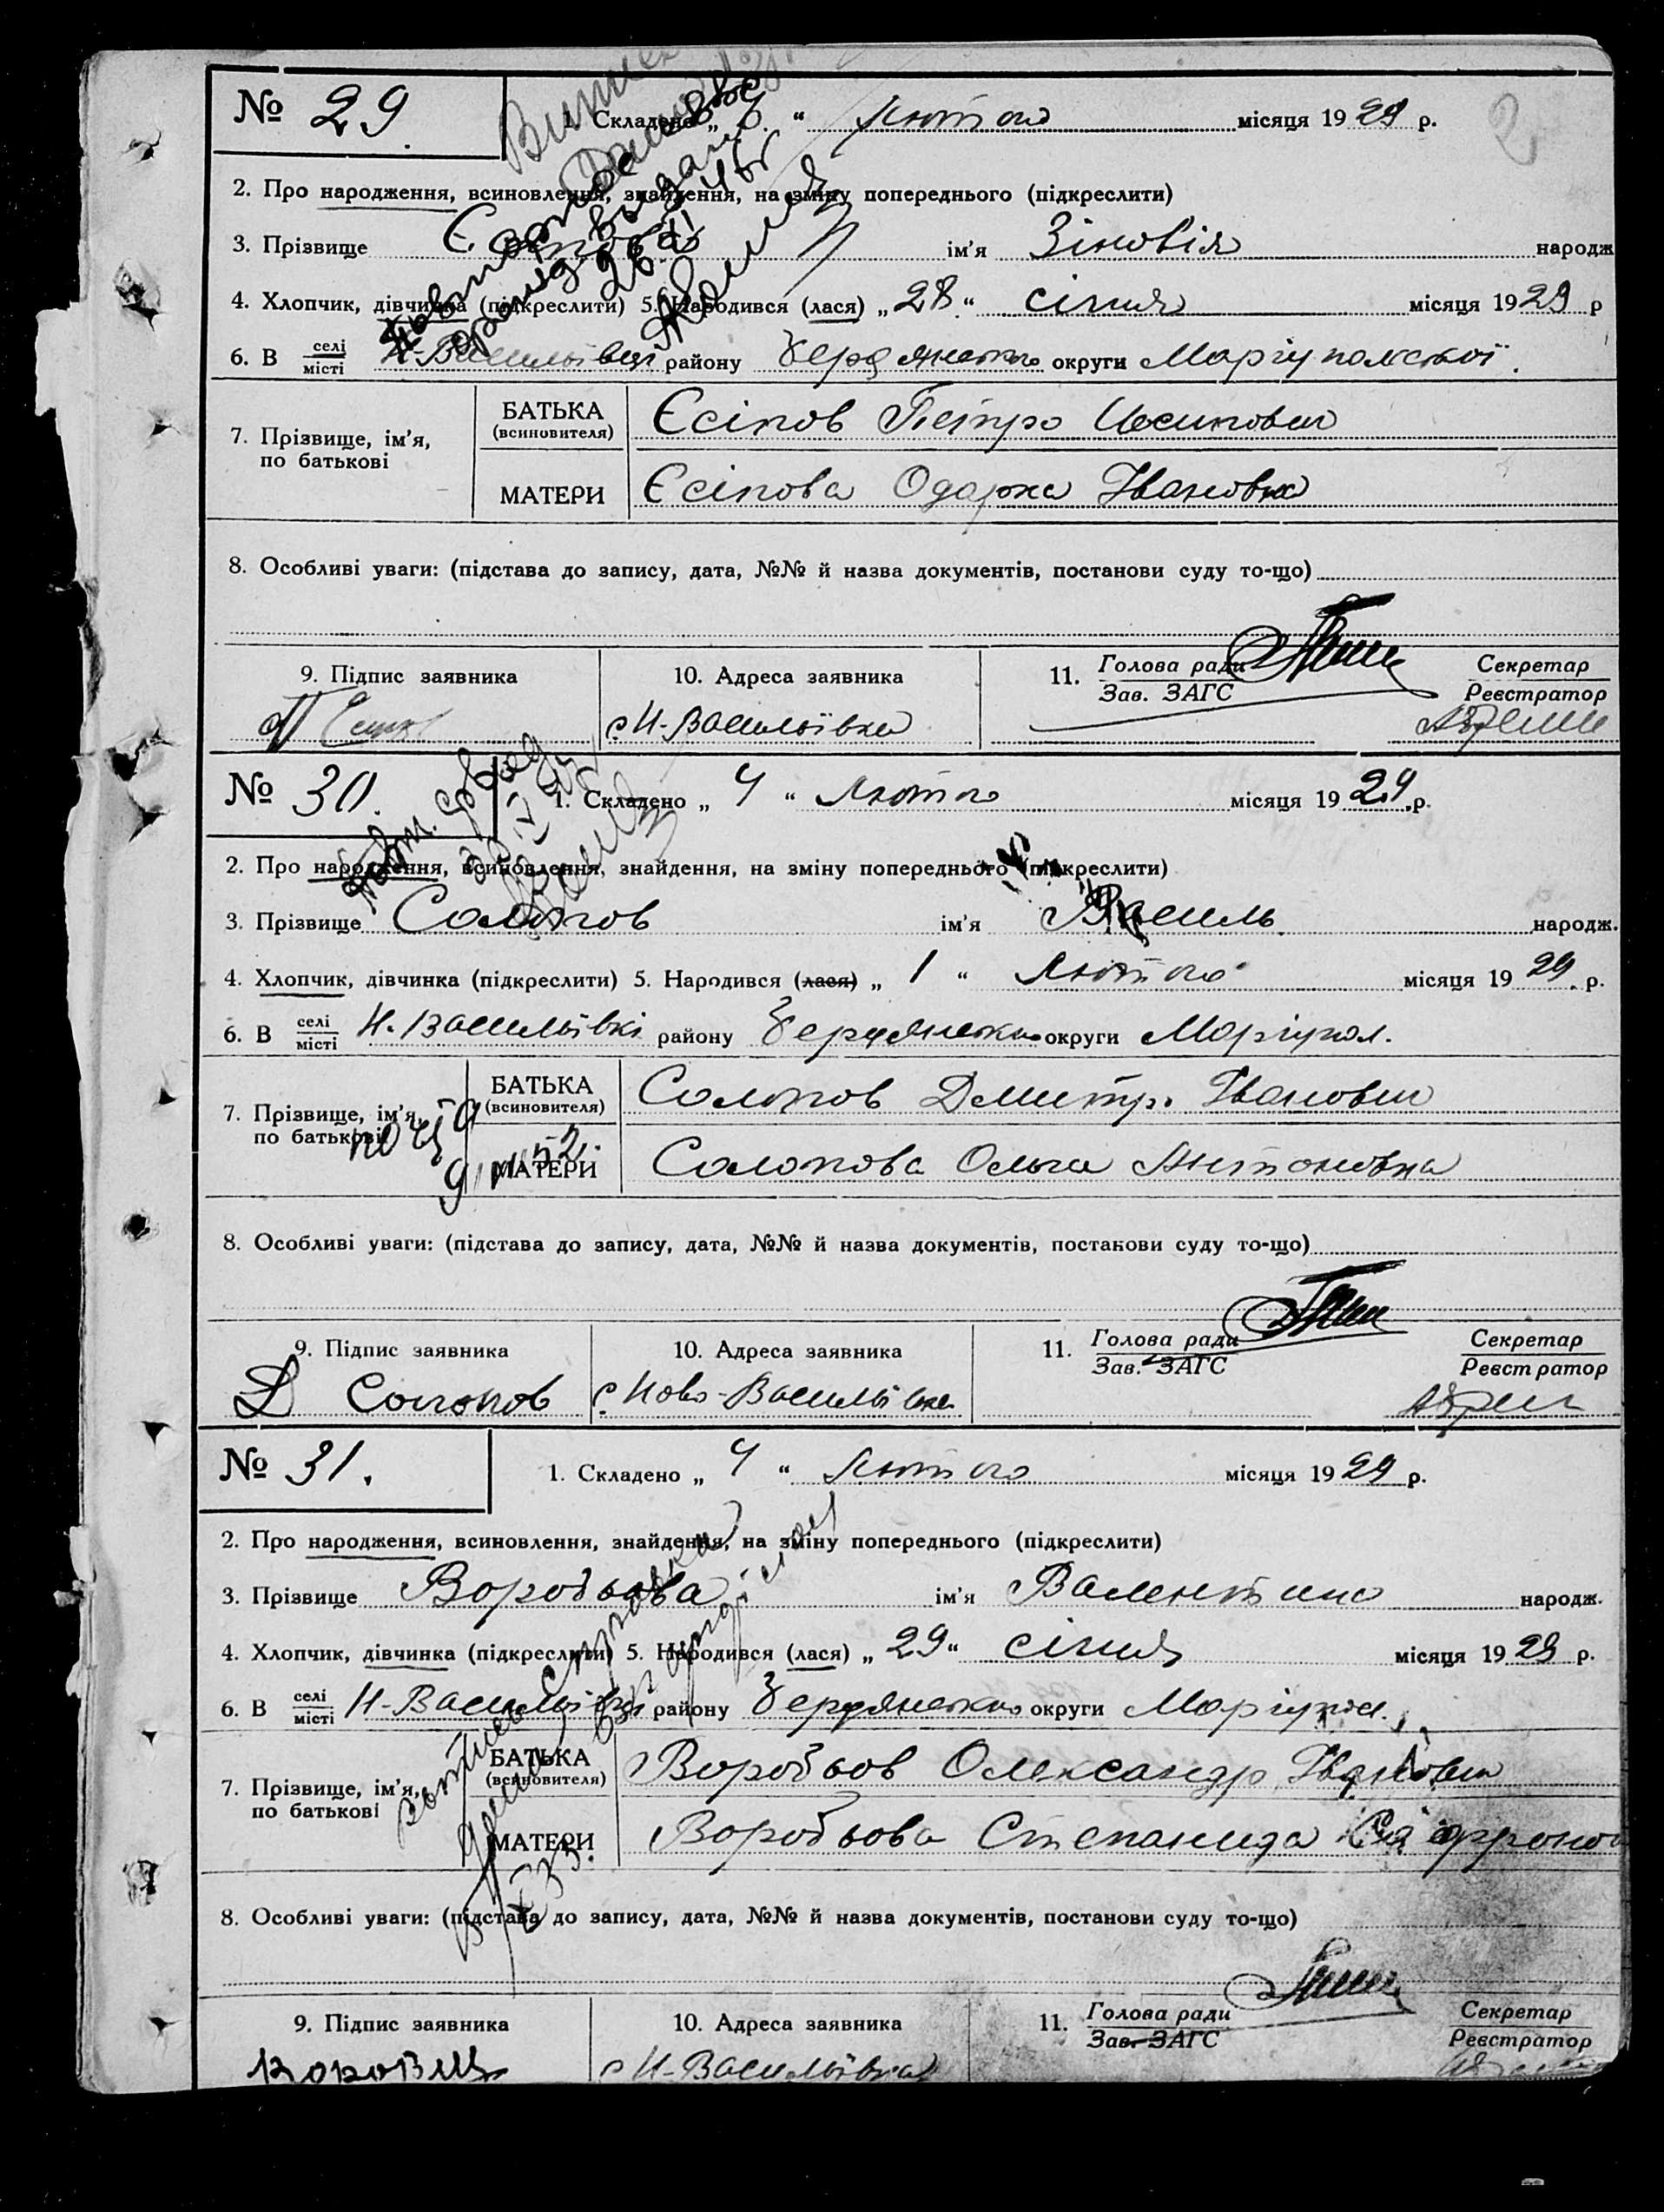 № 29.
2
1. Складено „ “ Лютого місяця 1929 р.
2. Про народження, всиновлення, знайдення, на зміну попереднього (підкреслити)
3. Прізвище Єсіпова ім'я Зіновія народж
4. Хлопчик, дівчинка (підкреслити) 5. Народився (лася) „28“ січня місяця 1929 р
6. В селі/місті Н-Васильївці району Бердянського округи Маріупольської.
7. Прізвище, ім'я, по батькові
БАТЬКА (всиновителя) Єсіпов Петро Иосипович
МАТЕРИ Єсіпова Одарка Івановна
8. Особливі уваги: (підстава до запису, дата, №№ й назва документів, постанови суду то-що)
9. Підпис заявника
10. Адреса заявника
11. Голова ради
Зав. ЗАГС
Секретар
Реєстратор
с Н-Васильївка
№ 30.
1. Складено „ 4 “ Лютого місяця 1929.р.
2. Про народження, всиновлення, знайдення, на зміну попереднього (підкреслити)
3. Прізвище Солопов ім'я Василь народж.
4. Хлопчик, дівчинка (підкреслити) 5. Народився (лася) „ 1 “ Лютого місяця 1929. р.
6. В селі/місті Н. Васильївкі району Бердянського округи Маріупол.
7. Прізвище, ім'я, по батькові
БАТЬКА (всиновителя) Солопов Дмитр. Іванович
МАТЕРИ Солопова Ольга Антоновна
8. Особливі уваги: (підстава до запису, дата, №№ й назва документів, постанови суду то-що)
9. Підпис заявника
10. Адреса заявника
11. Голова ради
Зав. ЗАГС
Секретар
Реєстратор
Д Солопов
с. Ново-Васильївка
№ 31.
1. Складено „ 4 “ Лютого місяця 1929 р.
2. Про народження, всиновлення, знайдення, на зміну попереднього (підкреслити)
3. Прізвище Воробьова ім'я Валентина народж.
4. Хлопчик, дівчинка (підкреслити) 5. Народився (лася) „ 29“ січня місяця 1929 р.
6. В селі/місті Н-Васильївці району Бердянського округи Маріупол.
7. Прізвище, ім'я, по батькові
БАТЬКА (всиновителя) Воробьов Олександр Іванович
МАТЕРИ Воробьова Степанида
8. Особливі уваги: (підстава до запису, дата, №№ й назва документів, постанови суду то-що)
9. Підпис заявника
10. Адреса заявника
11. Голова ради
Зав. ЗАГС
Секретар
Реєстратор
с Н-Васильївка